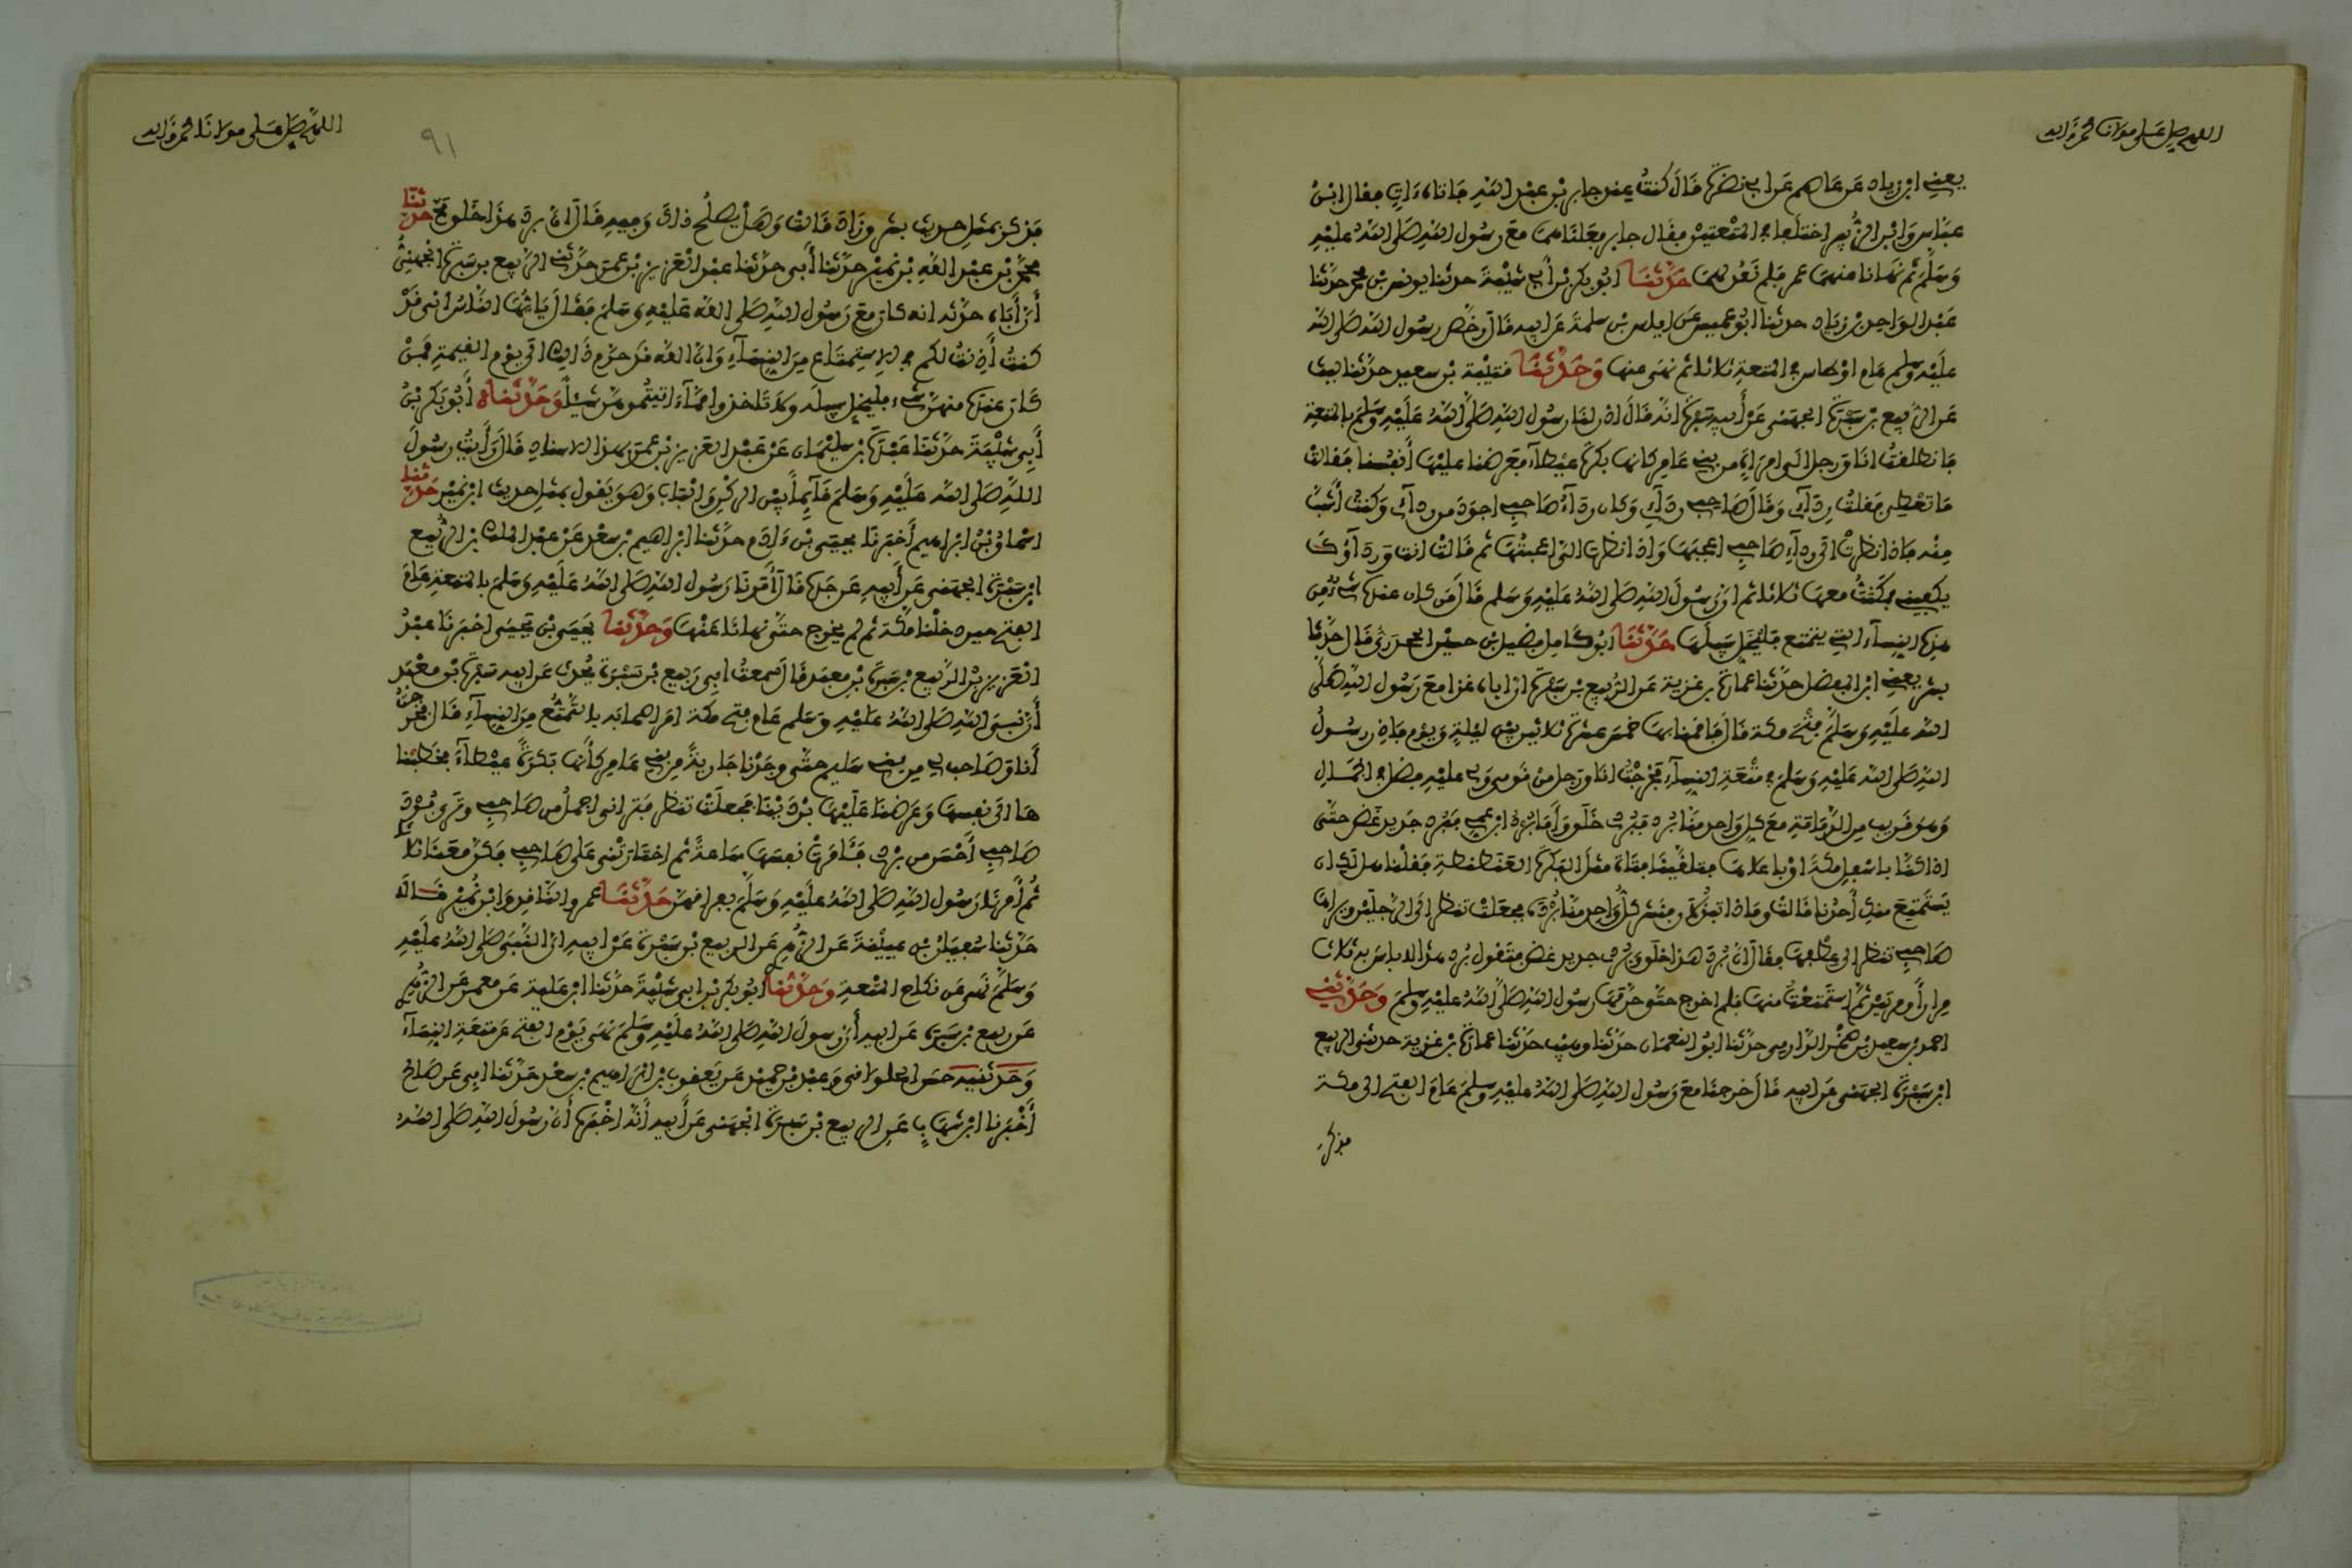 اللهم صل على مولانا محمد وآله
يعني ابن زياد عن عاصم عن ابي نضرة قال كنت عند جابر بن عبد الله فاتاه ءات فقال ابن
عباس وابن الزبير اختلفا في المتعتين فقال جابر فعلناهما مع رسول الله صلى الله عليه
وسلم ثم نهانا عنهما عمر فلم نعد لهما حدثنا ابو بكر بن أبي شيبة حدثنا يونس بن محمد حدثنا
عبد الواحد بن زياد حدثنا ابو عميس عن اياس بن سلمة عن ابيه قال رخص رسول الله صلى الله
عليه وسلم عام اوطاس في المتعة ثلاثا ثم نهى عنها وحدثنا قتيبة بن سعيد حدثنا ليث
عن الربيع بن سبرة الجهني عن أبيه سبرة انه قال اذن لنا رسول الله صلى الله عليه وسلم بالمتعة
فانطلقت انا ورجل الى امراة من بني عامر كانها بكرة عيطاء فعرضنا عليها أنفسنا فقالت
ما تعطي فقلت ردآي وقال صاحبي ردآي وكان ردآء صاحبي اجود من ردآي وكنت أشب
منه فاذا نظرت الى ردآء صاحبي اعجبها واذا نظرت الي اعجبتها ثم قالت انت وردآؤك
يكفيني فمكثت معها ثلاثا ثم ان رسول الله صلى الله عليه وسلم قال من كان عنده شيء من
هذه النسآء التي يتمتع فليخل سبيلها حدثنا ابو كامل فضيل بن حسين الجحدري قال حدثنا
بشر يعني ابن المفضل حدثنا عمارة بن غزية عن الربيع بن سبرة ان اباه غزا مع رسول الله صلى
الله عليه وسلم فتح مكة قال فاقمنا بها خمس عشرة ثلاثين بين ليلة ويوم فاذن رسول
الله صلى الله عليه وسلم في متعة النسآء فخرجت انا ورجل من قومي ولي عليه فضل في الجمال
وهو قريب من الدمامة مع كل واحد منا برد فبردي خلق وأما برد ابن عمي فبرد جديد غض حتى
اذا كنا باسفل مكة او باعلاها فتلقتنا فتاة مثل البكرة العنطنطة فقلنا هل لك ان
يستمتع منك أحدنا قالت وماذا تبذلان فنشر كل واحد منا برده فجعلت تنظر الى الرجلين ويراها
صاحبي تنظر الى عطفها فقال ان برد هذا خلق وبردي جديد غض فتقول برد هذا لا باس به ثلاث
مرار أو مرتين ثم استمتعت منها فلم اخرج حتى حرمها رسول الله صلى الله عليه وسلم وحدثني
احمد بن سعيد بن صخر الدارمي حدثنا ابو النعمان حدثنا وهيب حدثنا عمارة بن غزية حدثني الربيع
ابن سبرة الجهني عن ابيه قال خرجنا مع رسول الله صلى الله عليه وسلم عام الفتح الى مكة
فذكر
اللهم صل على مولانا محمد وآله
٩١
فذكر بمثل حديث بشر وزاد قالت وهل يصلح ذاك وفيه قال ان برد هذا خلق مح حدثنا
محمد بن عبد الله بن نمير حدثنا أبي حدثنا عبد العزيز بن عمر حدثني الربيع بن سبرة الجهني
أن أباه حدثه انه كان مع رسول الله صلى الله عليه وسلم فقال يا أيها الناس اني قد
كنت أذنت لكم في الاستمتاع من النسآء وان الله قد حرم ذلك الى يوم القيمة فمن
كان عنده منهن شيء فليخل سبيله ولا تاخذوا مما ءاتيتموهن شيئا وحدثناه أبو بكر بن
أبي شيبة حدثنا عبدة بن سليمان عن عبد العزيز بن عمر بهذا الاسناد قال رأيت رسول
الله صلى الله عليه وسلم قآيما بين الركن والباب وهو يقول بمثل حديث ابن نمير حدثنا
اسحاق بن ابراهيم أخبرنا يحيى بن ءادم حدثنا ابراهيم بن سعد عن عبد الملك بن الربيع
ابن سبرة الجهني عن أبيه عن جده قال أمرنا رسول الله صلى الله عليه وسلم بالمتعة عام
الفتح حين دخلنا مكة ثم لم يخرج حتى نهانا عنها وحدثنا يحيى بن يحيى اخبرنا عبد
العزيز بن الربيع بن سبرة بن معبد قال سمعت ابي ربيع بن سبرة يحدث عن ابيه سبرة بن معبد
أن نبي الله صلى الله عليه وسلم عام فتح مكة امر اصحابه بالتمتع من النسآء قال فخرجت
أنا وصاحب لي من بني سليم حتى وجدنا جارية من بني عامر كأنها بكرة عيطآء فخطبنا
ها الى نفسها وعرضنا عليها بردينا فجعلت تنظر فتراني اجمل من صاحبي وترى برد
صاحبي أحسن من بردي فئامرت نفسها ساعة ثم اختارتني على صاحبي فكن معنا ثلاثا
ثم أمرنا رسول الله صلى الله عليه وسلم بفراقهن حدثنا عمرو الناقد وابن نمير قالا
حدثنا سفيان بن عيينة عن الزهري عن الربيع بن سبرة عن ابيه ان النبي صلى الله عليه
وسلم نهى عن نكاح المتعة وحدثنا ابو بكر بن ابي شيبة حدثنا ابن علية عن معمر عن الزهري
عن ربيع بن سبرة عن ابيه أن رسول الله صلى الله عليه وسلم نهى يوم الفتح عن متعة النسآء
وحدثنيه حسن الحلواني وعبد بن حميد عن يعقوب بن ابراهيم بن سعد حدثنا ابي عن صالح
أخبرنا ابن شهاب عن الربيع بن سبرة الجهني عن أبيه أنه اخبره أن رسول الله صلى الله